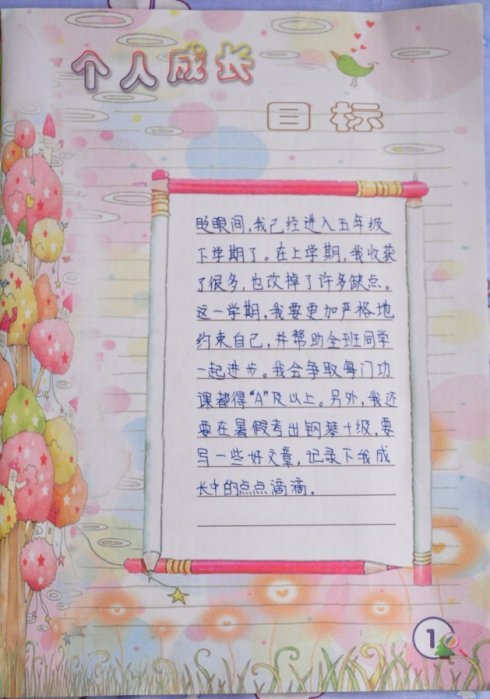 个人成长
目标
眨眼间,我已经进入五年级
下学期了。在上学期,我收获
了很多,也改掉了许多缺点。
这一学期,我要更加严格地
约束自己,并帮助全班同学
一起进步。我会争取每门功
课都得“A”及以上。另外,我还
要在暑假考出钢琴十级,要
写一些好文章,记录下我成
长中的点点滴滴。
1